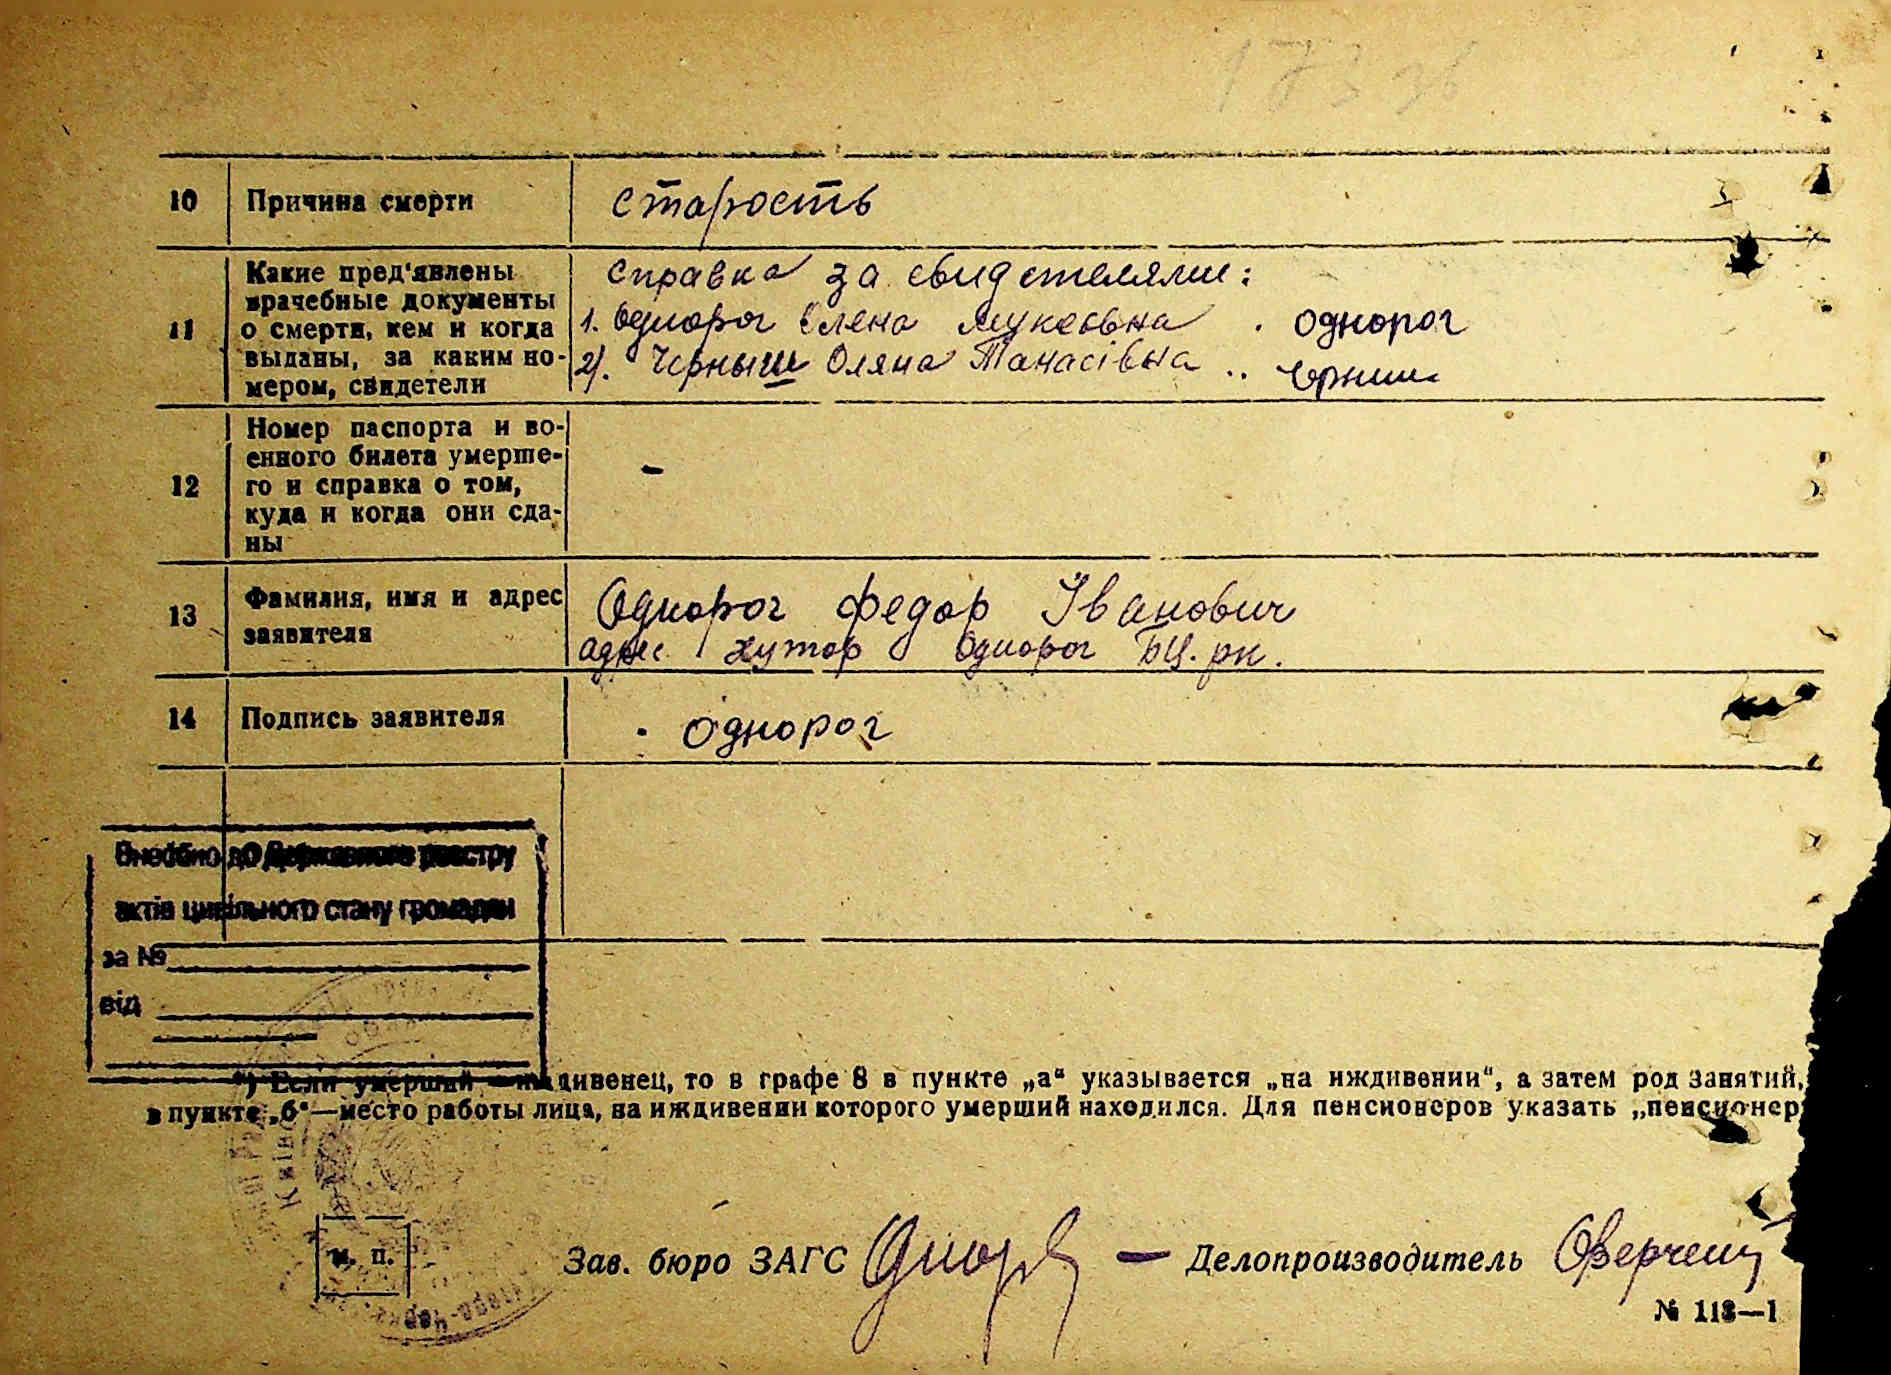 173 зв
10 Причина смерти старость
11 Какие пред'явлены врачебные документы о смерти, кем и когда выданы, за каким но-мером, свидетели
справка за свидетелями:
1. Однорог Елена Мукеовна . Однорог
2). Черныш Оляна Танасівна .. Черниш
12 Номер паспорта и во-
енного билета умерше-
го и справка о том,
куда и когда они сда-
ны
-
13 Фамилия, имя и адрес
заявителя
Однорог Федор Іванович
адрес хутор Однорог БЦ. рн.
14 Подпись заявителя . Однорог
Внесено до Державного реєстру
актів цивільного стану громадян
за №
від
*) Если умерший —иждивенец, то в графе 8 в пункте „а“ указывается „на иждивении“, а затем род занятий,
в пункте „б“—место работы лица, на иждивении которого умерший находился. Для пенсионеров указать „пенсионер
м. п. Зав. бюро ЗАГС — Делопроизводитель
№ 113—1